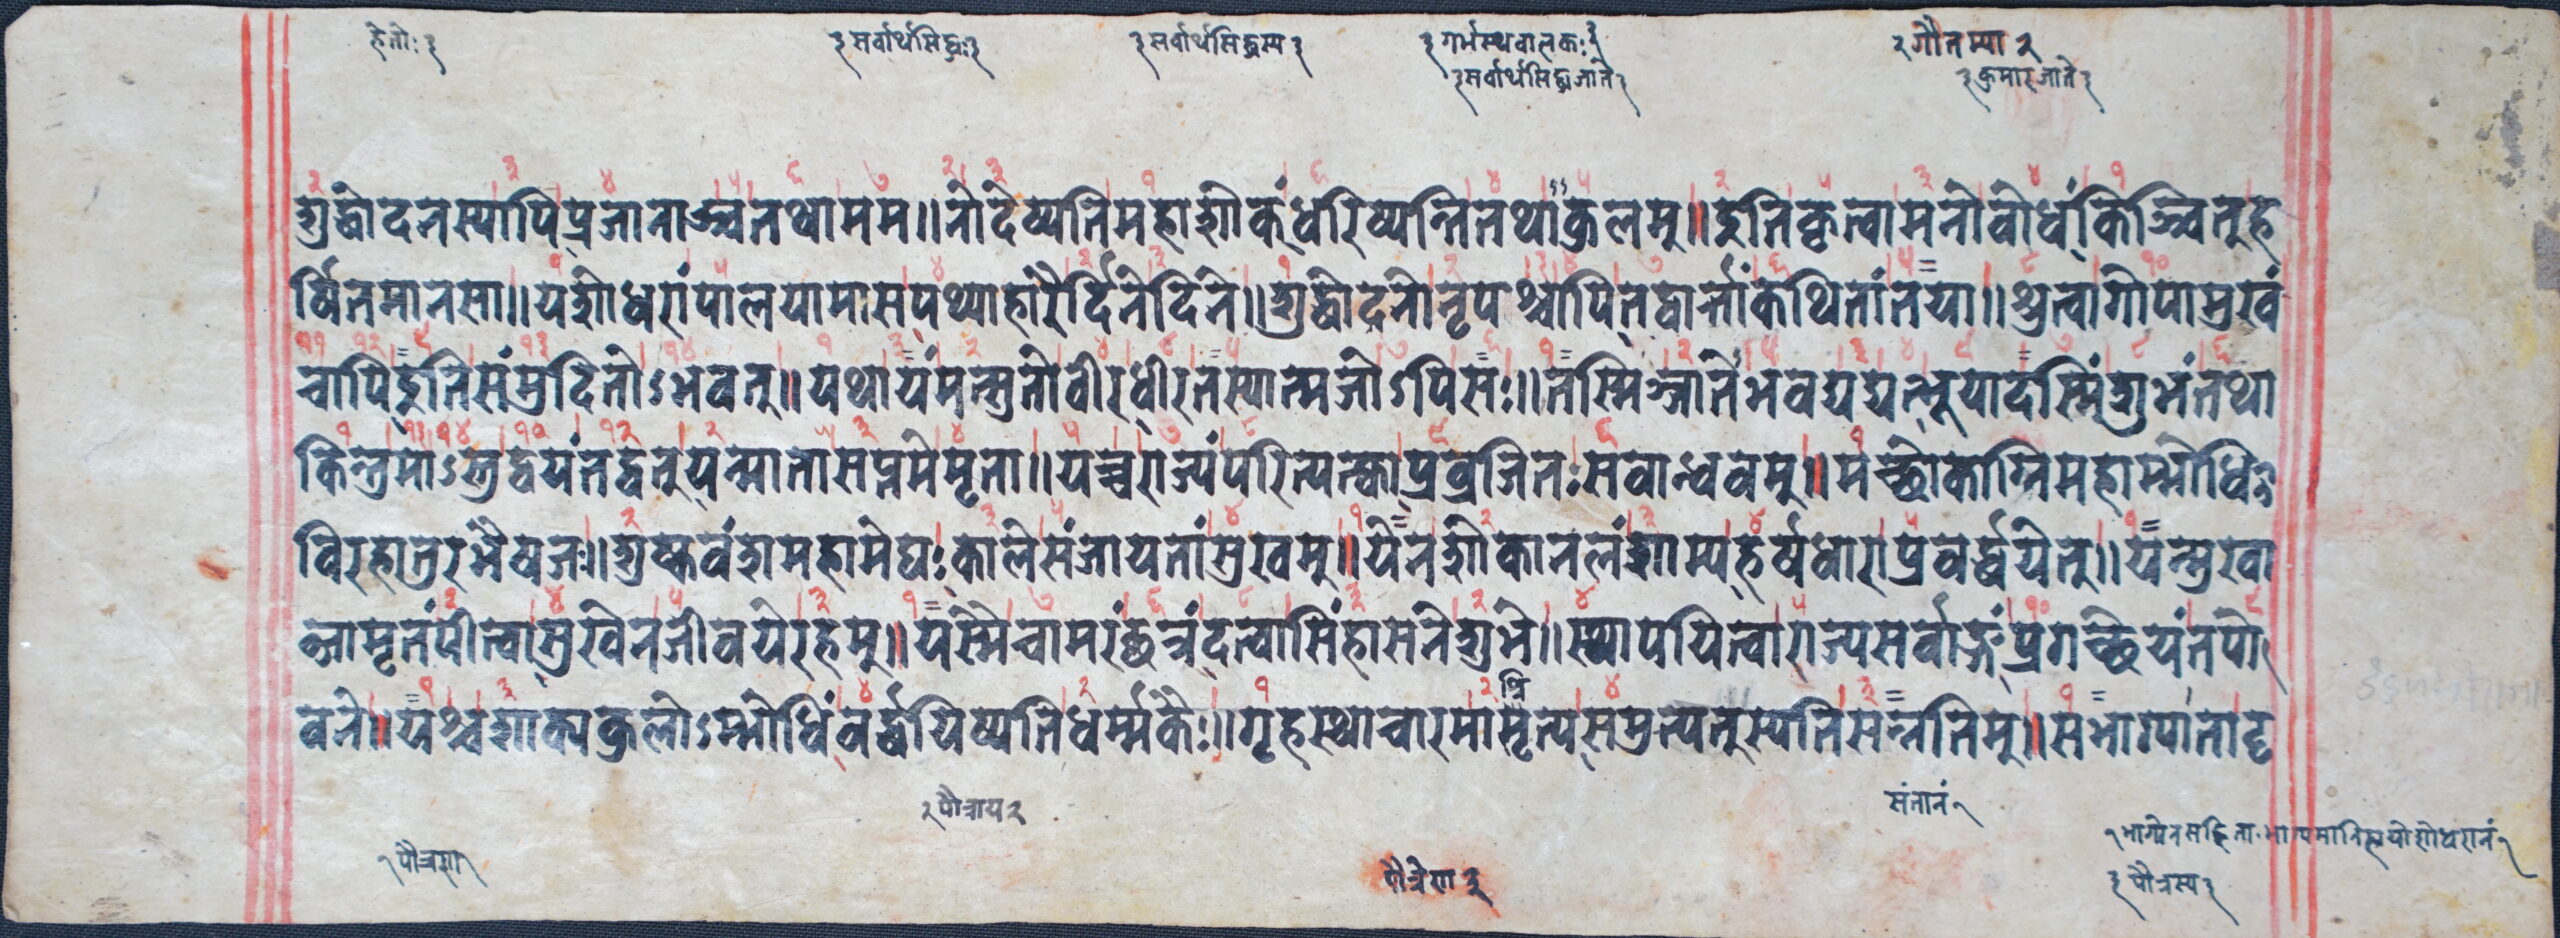 हेतोः३ ३सर्वार्थसिद्धः३ ३सर्वार्थसिद्धस्य३ ३गर्भस्थबालकः३ २गौतम्या२
३सर्वार्थसिद्धजाते३ ३कुमारजाते३
शुद्धोदनस्यापिप्रजानाञ्चतथामम॥नोदेष्यतिमहाशोकंधरिष्यन्तितथाकुलम्॥इतिकृत्वामनोबोधंकिञ्चित्ह
र्षितमानसा॥यशोधरांपालयामासपथ्याहारैर्दिनेदिने॥शुद्धोदनोनृपश्चापितद्वार्त्तांकथितांतया॥श्रुत्वागोपामुखं
चापिइतिसंमुदितोऽभवत्॥यथायंमत्सुतोवीरधीरतस्यात्मजोऽपिसः॥तस्मिञ्जातेभवद्यद्यत्भूयादस्मिंशुभंतथा
किन्तुमाऽस्तुद्वयंतद्वत्यन्मातासप्तमेमृता॥यच्चराज्यंपरित्यक्त्वाप्रव्रजितःसबान्धवम्॥मच्छोकाग्निमहाम्भोधि
विरहातुरभैषजः॥शुष्कवंशमहामेघःकालेसंजायतांसुखम्॥येनशोकानलंशाम्यहर्षधाराप्रवर्द्धयेत्॥यन्मुखा
ब्जामृतंपीत्वासुखेनजीवयेरहम्॥यस्मैचामरंछत्रंदत्वासिंहासनेशुभे॥स्थापयित्वाराज्यसर्वाङ्गंप्रगच्छेयंतपो
वने॥यश्चशाक्यकुलोऽम्भोधिंवर्द्धयिष्यतिधर्म्मकैः॥गृहस्थाचारमासृत्यसमुत्पत्स्यतिसन्नतिम्॥सभाग्यातादृ
२पौत्राय२ संतानं१
१पौत्रशा१ पौत्रेण३ ३पौत्रस्य३